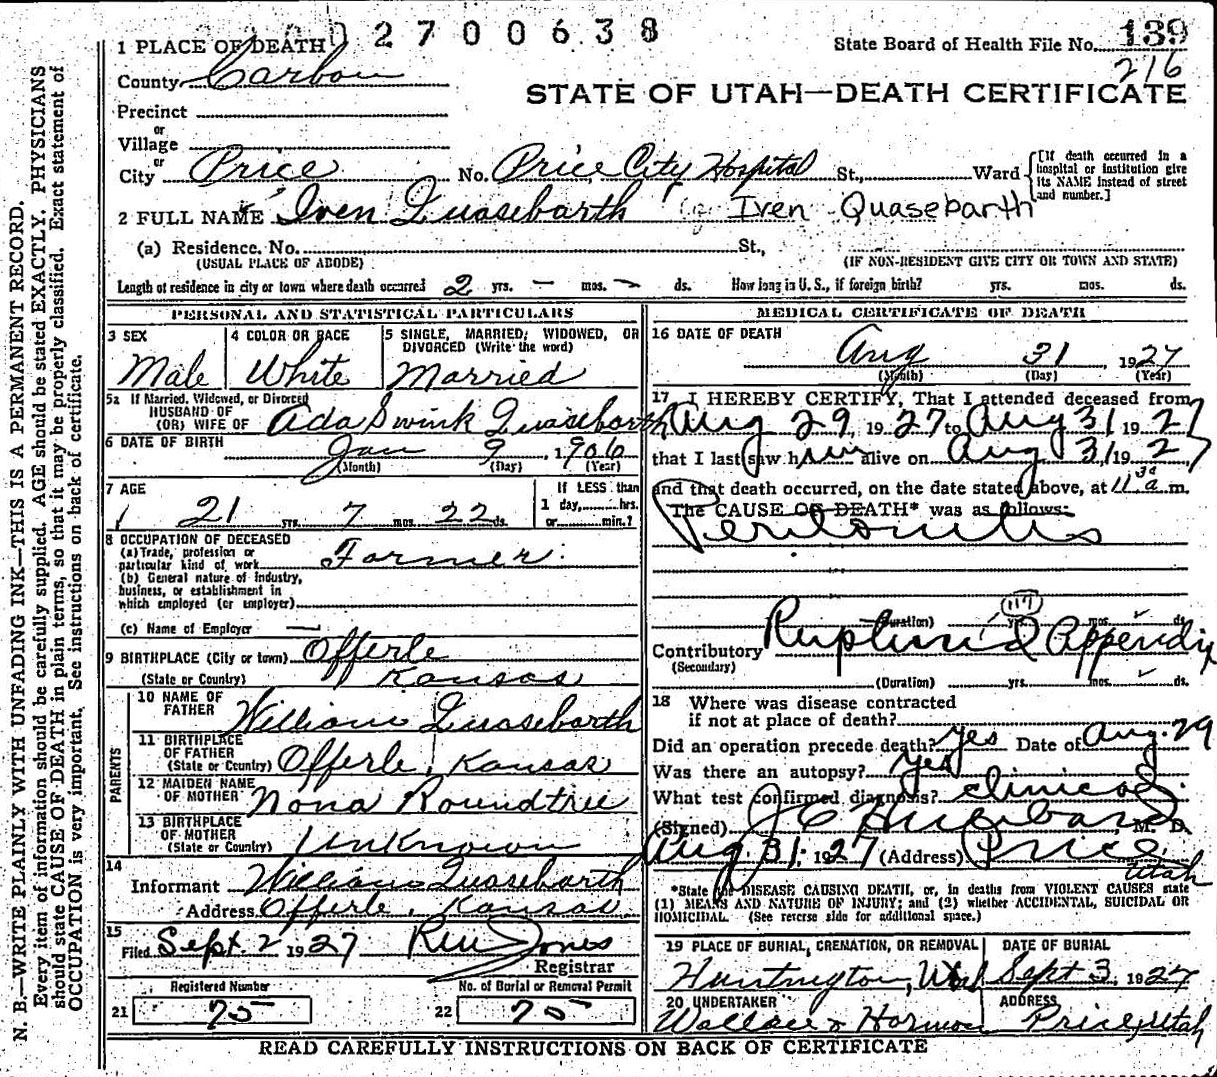 2700638
1 PLACE OF DEATH
State Board of Health File No. 139
216
County Carbon
STATE OF UTAH—DEATH CERTIFICATE
Precinct
or
Village
or
City Price No. Price City Hospital St., Ward [If death occurred in a hospital or institution give its NAME instead of street and number.]
2 FULL NAME Iven Quasebarth Iven Quasebarth
(a) Residence. No. St.,
(USUAL PLACE OF ABODE) (IF NON-RESIDENT GIVE CITY OR TOWN AND STATE)
Length of residence in city or town where death occurred 2 yrs. — mos. — ds. How long in U. S., if foreign birth? yrs. mos. ds.
PERSONAL AND STATISTICAL PARTICULARS
3 SEX
Male
4 COLOR OR RACE
White
5 SINGLE, MARRIED, WIDOWED, OR
DIVORCED (Write the word)
Married
5a If Married, Widowed, or Divorced
HUSBAND OF
(OR) WIFE OF Ada Swink Quasebarth
6 DATE OF BIRTH
Jan 9, 1906
(Month) (Day) (Year)
7 AGE
21 yrs. 7 mos. 22 ds.
If LESS than
1 day, hrs.
or min.?
8 OCCUPATION OF DECEASED
(a) Trade, profession or
particular kind of work Farmer
(b) General nature of industry,
business, or establishment in
which employed (or employer)
(c) Name of Employer —
9 BIRTHPLACE (City or town) Offerle
(State or Country) Kansas
PARENTS
10 NAME OF
FATHER William Quasebarth
11 BIRTHPLACE
OF FATHER
(State or Country) Offerle, Kansas
12 MAIDEN NAME
OF MOTHER Nona Roundtree
13 BIRTHPLACE
OF MOTHER
(State or Country) Unknown
14
Informant William Quasebarth
Address Offerle, Kansas
15
Filed Sept. 2 1927 Jones
Registrar
Registered Number
21 75
No. of Burial or Removal Permit
22 75
MEDICAL CERTIFICATE OF DEATH
16 DATE OF DEATH
Aug 31 1927
(Month) (Day) (Year)
17 I HEREBY CERTIFY, That I attended deceased from
Aug 29, 1927 to Aug 31 1927
that I last saw him alive on Aug 31 1927
and that death occurred, on the date stated above, at 11 30 a m.
The CAUSE OF DEATH* was as follows:
Peritonitis
117
(Duration) yrs. mos. ds.
Contributory Ruptured Appendix
(Secondary)
(Duration) yrs. mos. ds.
18 Where was disease contracted
if not at place of death?
Did an operation precede death? yes Date of Aug. 29
Was there an autopsy? yes
What test confirmed diagnosis? clinical
(Signed) J C Hubbard, M. D.
Aug 31, 1927 (Address) Price
Utah
*State the DISEASE CAUSING DEATH, or, in deaths from VIOLENT CAUSES state
(1) MEANS AND NATURE OF INJURY; and (2) whether ACCIDENTAL, SUICIDAL OR
HOMICIDAL. (See reverse side for additional space.)
19 PLACE OF BURIAL, CREMATION, OR REMOVAL
Huntington, Utah
DATE OF BURIAL
Sept 3 1927
20 UNDERTAKER
Wallace & Harmon
ADDRESS
Price, Utah
READ CAREFULLY INSTRUCTIONS ON BACK OF CERTIFICATE
N. B.—WRITE PLAINLY WITH UNFADING INK—THIS IS A PERMANENT RECORD.
Every item of information should be carefully supplied. AGE should be stated EXACTLY. PHYSICIANS
should state CAUSE OF DEATH in plain terms, so that it may be properly classified. Exact statement of
OCCUPATION is very important. See instructions on back of certificate.